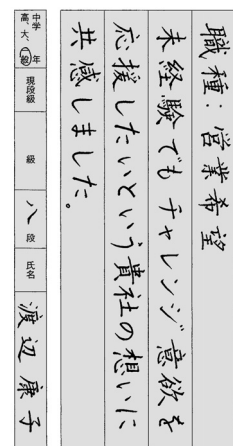 職種：営業希望
未経験でもチャレンジ意欲を
応援したいという貴社の想いに
共感しました。
中学 高、大、一般 年 現段級 級 八段 氏名 渡辺康子